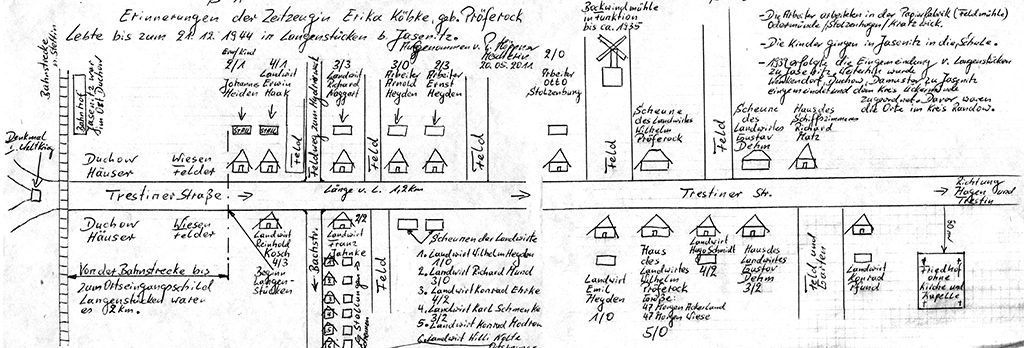 Erinnerungen der Zeitzeugin Erika Köbke, geb. Pröferock
Lebte bis zum 21.12.1944 in Langenstücken b. Jasenitz.
20.05.2011
Bahnstrecke
Bahnhof
Jasenitz war
im Ort Duchow
Denkmal
Duchow
Häuser
Wiesen
Felder
2/1
Johannes
Heiden
4/1
Landwirt
Erwin
Haak
Stall
Stall
Feld
3/3
Landwirt
Richard
Feld
3/0
Arbeiter
Arnold
Heyden
2/3
Arbeiter
Ernst
Heyden
Feld
2/0
Arbeiter
Otto
Stolzenburg
Bockwindmühle
in Funktion
bis ca. 1935
Feld
Scheune
des Landwirtes
Wilhelm
Pröferock
Feld
Scheune
des
Landwirtes
Gustav
Dehm
Haus des
Schiffszimmerers
Richard
Matz
-Die Arbeiter arbeiteten in der Papierfabrik (Feldmühle)
Odermünde/Stolzenhagen/Kratzwick.
-Die Kinder gingen in Jasenitz in die Schule.
-1939 erfolgte die Eingemeindung v. Langenstücken
zu Jasenitz. Weiterhin wurde
Duchow, Damuster zu Jasenitz
eingemeindet und dem Kreis Ueckermünde
zugeordnet. Davor waren
die Orte im Kreis Randow.
Trestiner Straße
Länge v. L. 1,2 km
Trestiner Str.
Richtung
Hagen und
Trestin
Duchow
Häuser
Wiesen
Felder
Von der Bahnstrecke bis
zum Ortseingangsschild
Langenstücken waren
es 2 km.
Landwirt
Reinhold
Kosch
4/3
Beginn
Langen-
stücken
Bachstr.
2/2
Landwirt
Franz
Jahnke
Feld
Scheunen der Landwirte
1. Landwirt Wilhelm Heyden
1/0
2. Landwirt Richard Mund
3/0
3. Landwirt Konrad Ehrke
4/2
4. Landwirt Karl Schmenke
3/2
5. Landwirt Konrad
6. Landwirt Willi Nölte
Landwirt
Emil
Heyden
1/0
Haus
des
Landwirtes
Wilhelm
Pröferock
Größe:
47 Morgen Ackerland
47 Morgen Wiese
5/0
Landwirt
Hugo Schmidt
4/2
Haus des
Landwirtes
Gustav
Dehm
3/2
Feld und
Garten
Landwirt
Konrad
Pfund
Friedhof
ohne
Kirche und
Kapelle